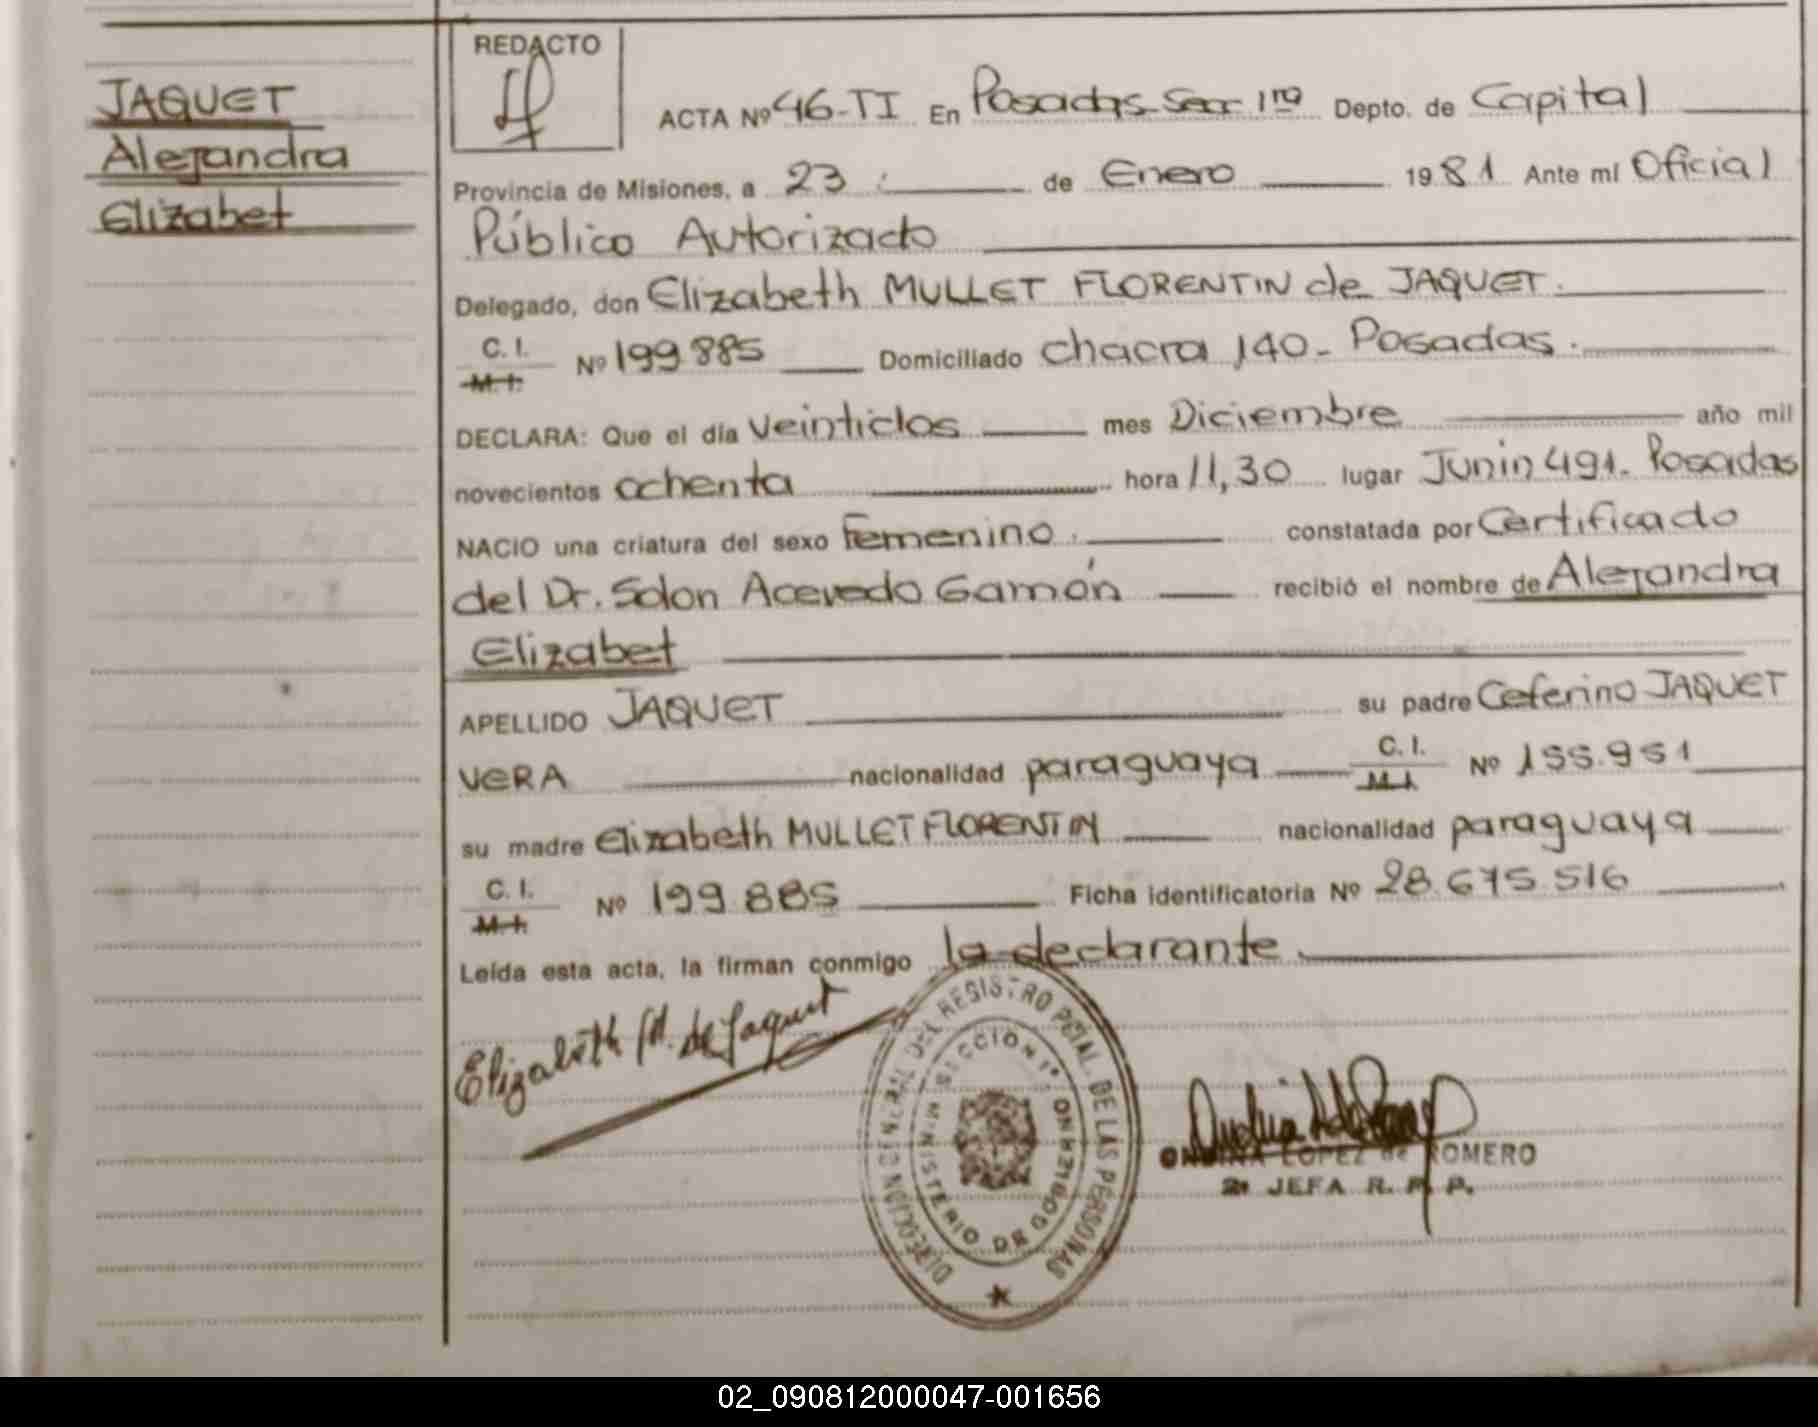 JAQUET
Alejandra
Elizabet
REDACTO
ACTA Nº 46-TI En Posadas Secc 1ra Depto. de Capital
Provincia de Misiones, a 23 de Enero 1981 Ante mí Oficial
Público Autorizado
Delegado, don Elizabeth MULLET FLORENTIN de JAQUET.
C. I.
M. I.
Nº 199 885 Domiciliado chacra 140 - Posadas.
DECLARA: Que el día veintidos mes Diciembre año mil
novecientos ochenta hora 11,30 lugar Junin 491. Posadas
NACIO una criatura del sexo Femenino. constatada por Certificado
del Dr. Solon Acevedo Gamón recibió el nombre de Alejandra
Elizabet
APELLIDO JAQUET su padre Ceferino JAQUET
VERA nacionalidad paraguaya C. I. M. I. Nº 155.951
su madre Elizabeth MULLET FLORENTIN nacionalidad paraguaya
C. I.
M. I.
Nº 199 885 Ficha identificatoria Nº 28.675.516
Leída esta acta, la firman conmigo la declarante
Elizabeth M. de Jaquet
DIRECCION GENERAL DEL REGISTRO PCIAL. DE LAS PERSONAS
SECCION 1ª
MINISTERIO DE GOBIERNO
ONDINA LOPEZ de ROMERO
2ª JEFA R. P. P.
02_090812000047-001656